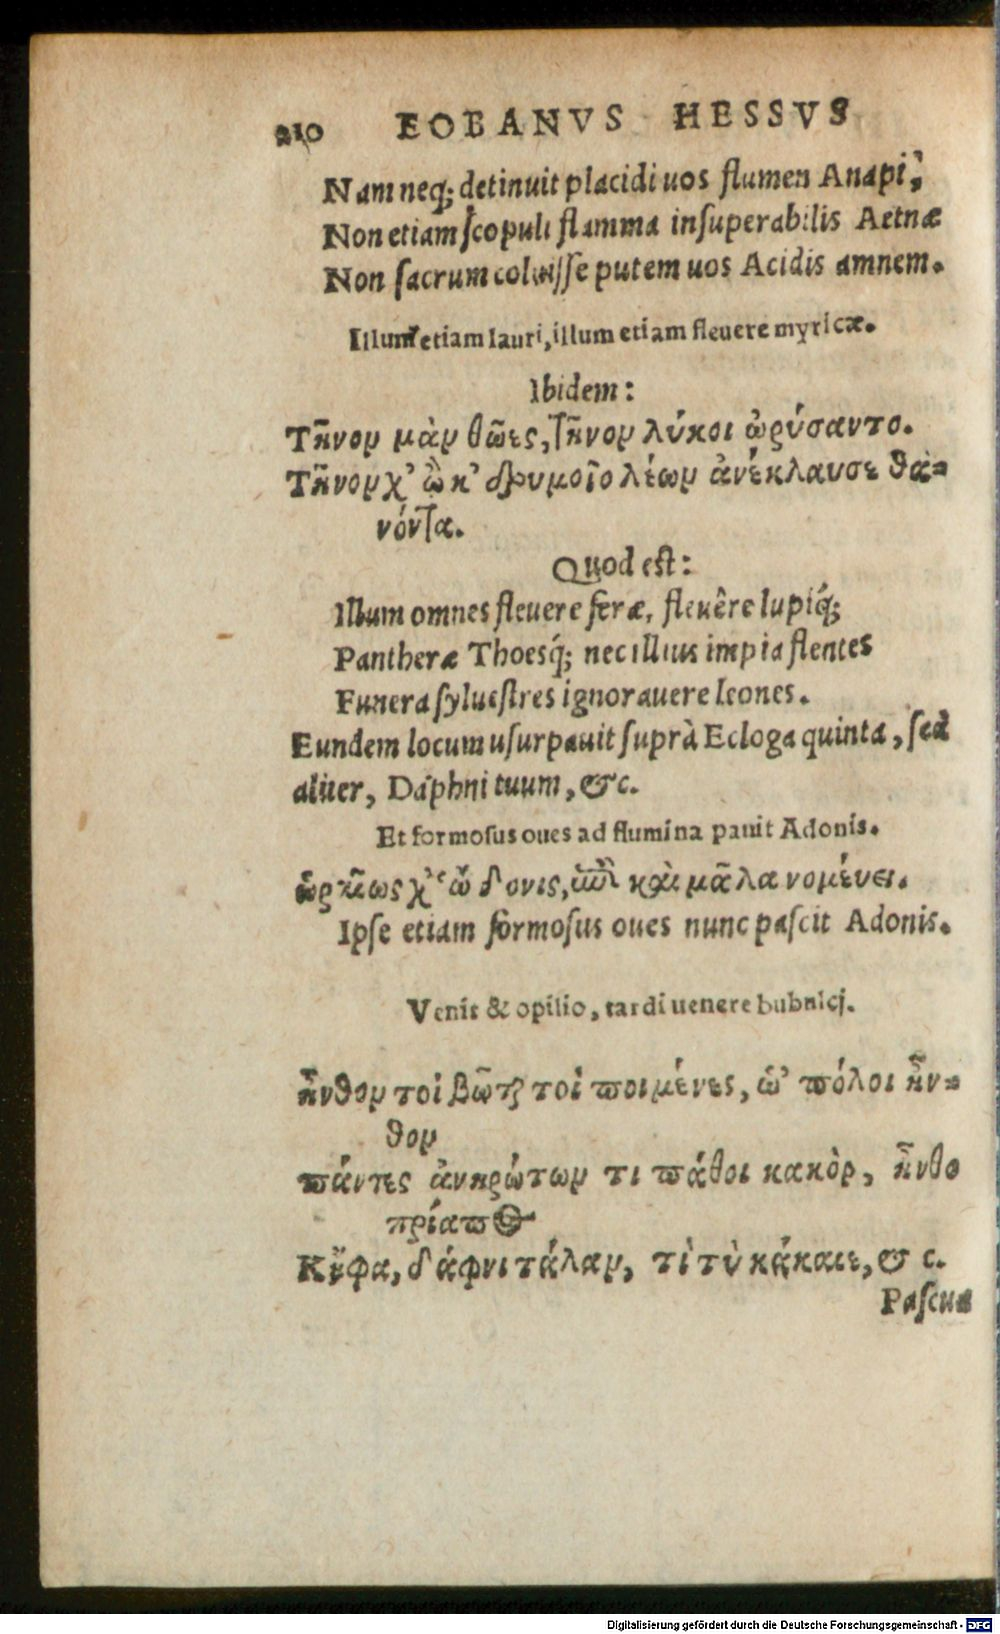 210 EOBANVS HESSVS
Nam neq; detinuit placidi uos flumen Anapi,
Non etiam scopuli flamma insuperabilis Aetnæ
Non sacrum coluisse putem uos Acidis amnem.
Illum etiam lauri, illum etiam fleuere myricæ.
Ibidem:
Τῆνον μὰν θῶες, τῆνον λύκοι ὠρύσαντο.
Τῆνον χ' ὢ κ' δρυμοῖο λέων ἀνέκλαυσε θα-
νόντα.
Quod est:
Illum omnes fleuere feræ, fleuêre lupiq́;
Pantheræ Thoesq́; nec illius impia flentes
Funera syluestres ignorauere leones.
Eundem locum usurpauit suprà Ecloga quinta, sed
aliter, Daphni tuum, &c.
Et formosus oues ad flumina pauit Adonis.
ὡραῖος χ' ὤδονις, ἐπεὶ καὶ μᾶλα νομέυει.
Ipse etiam formosus oues nunc pascit Adonis.
Venit & opilio, tardi uenere bubulcj.
ἦνθον τοὶ βῶται τοὶ ποιμένες, ὡ' πόλοι ἦν-
θον
πάντες ἀνηρώτων τι πάθοι κακὸν, ἦνθο
πρίαπος
Κἤφα, δάφνι τάλαν, τὶ τὺ κάκαιε, & c.
Pascua
Digitalisierung gefördert durch die Deutsche Forschungsgemeinschaft - DFG